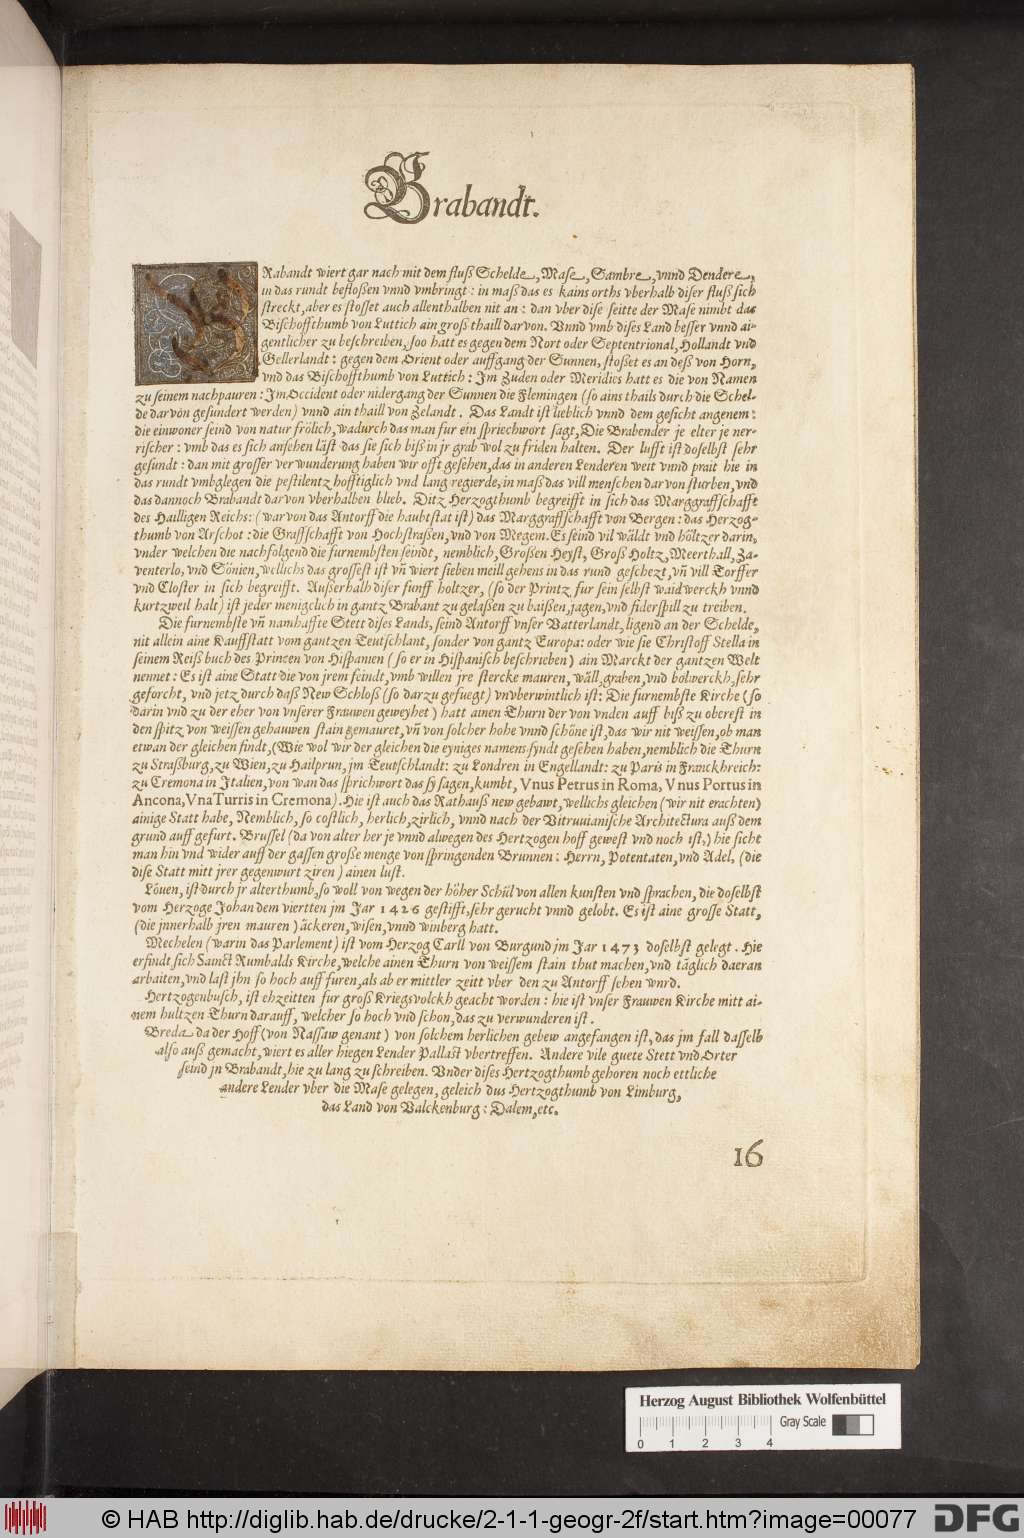 Brabandt.
BRabandt wiert gar nach mit dem fluß Schelde, Mase, Sambre, vnnd Dendere,
in das rundt befloßen vnnd vmbringt: in maß das es kains orths vberhalb diser fluß sich
streckt, aber es stosset auch allenthalben nit an: dan vber dise seitte der Mase nimbt das
Bischoffthumb von Luttich ain groß thaill darvon. Vnnd vmb dises Land besser vnnd ai-
gentlicher zu beschreiben, soo hatt es gegen dem Nort oder Septentrional, Hollandt vnd
Gellerlandt: gegen dem Orient oder auffgang der Sunnen, stoßet es an deß von Horn,
vnd das Bischoffthumb von Luttich: Im Zuden oder Meridies hatt es die von Namen
zu seinem nachpauren: Im Occident oder nidergang der Sunnen die Flemingen (so ains thails durch die Schel-
de darvon gesundert werden) vnnd ain thaill von Zelandt. Das Landt ist lieblich vnnd dem gesicht angenem:
die einwoner seind von natur frölich, wadurch das man fur ein spriechwort sagt, Die Brabender je elter je ner-
rischer: vmb das es sich ansehen läst das sie sich biß in jr grab wol zu friden halten. Der lufft ist doselbst sehr
gesundt: dan mit grosser verwunderung haben wir offt gesehen, das in anderen Lenderen weit vnnd prait hie in
das rundt vmbglegen die pestilentz hofftiglich vnd lang regierde, in maß das vill menschen darvon sturben, vnd
das dannoch Brabandt darvon vberhalben blieb. Ditz Herzogthumb begreifft in sich das Marggraffschafft
des Hailligen Reichs: (warvon das Antorff die haubtstat ist) das Marggraffschafft von Bergen: das Herzog-
thumb von Arschot: die Graffschafft von Hochstraßen, vnd von Megem. Es seind vil wäldt vnd höltzer darin,
vnder welchen die nachfolgend die furnembsten seindt, nemblich, Großen Heyst, Groß Holtz, Meerthall, Za-
venterlo, vnd Sönien, wellichs das grossest ist vn̄ wiert sieben meill gehens in das rund geschezt, vn̄ vill Torffer
vnd Closter in sich begreifft. Außerhalb diser funff holtzer, (so der Printz fur sein selbst waidwerckh vnnd
kurtzweil halt) ist jeder menigclich in gantz Brabant zu gelaßen zu baißen, jagen, vnd fiderspill zu treiben.
Die furnembste vn̄ namhaffte Stett dises Lands, seind Antorff vnser Vatterlandt, ligend an der Schelde,
nit allein aine Kauffstatt vom gantzen Teutschlant, sonder von gantz Europa: oder wie sie Christoff Stella in
seinem Reiß buch des Prinzen von Hispanien (so er in Hispanisch beschrieben) ain Marckt der gantzen Welt
nennet: Es ist aine Statt die von jrem feindt, vmb willen jre stercke mauren, wäll, graben, vnd bolwerckh, sehr
geforcht, vnd jetz durch daß New Schloß (so darzu gefuegt) vnvberwintlich ist: Die furnembste Kirche (so
darin vnd zu der eher von vnserer Frauwen geweyhet) hatt ainen Thurn der von vnden auff biß zu oberest in
den spitz von weissen gehauwen stain gemauret, vn̄ von solcher hohe vnnd schöne ist, das wir nit weissen, ob man
etwan der gleichen findt, (Wie wol wir der gleichen die eyniges namens syndt gesehen haben, nemblich die Thurn
zu Straßburg, zu Wien, zu Hailprun, jm Teutschlandt: zu Londren in Engellandt: zu Paris in Franckhreich:
zu Cremona in Italien, von wan das sprichwort das sy sagen, kumbt, Vnus Petrus in Roma, Vnus Portus in
Ancona, Vna Turris in Cremona). Hie ist auch das Rathauß new gebawt, wellichs gleichen (wir nit erachten)
ainige Statt habe, Nemblich, so costlich, herlich, zirlich, vnnd nach der Vitruuianische Architectura auß dem
grund auff gefurt. Brussel (da von alter her je vnnd alwegen des Hertzogen hoff gewest vnd noch ist,) hie sicht
man hin vnd wider auff der gassen große menge von springenden Brunnen: Herrn, Potentaten, vnd Adel, (die
dise Statt mitt jrer gegenwurt ziren) ainen lust.
Löuen, ist durch jr alterthumb, so woll von wegen der höher Schůl von allen kunsten vnd sprachen, die doselbst
vom Herzoge Johan dem viertten jm Jar 1426 gestifft, sehr gerucht vnnd gelobt. Es ist aine grosse Statt,
(die jnnerhalb jren mauren) äckeren, wisen, vnnd winberg hatt.
Mechelen (warin das Parlement) ist vom Herzog Carll von Burgund jm Jar 1473 doselbst gelegt. Hie
erfindt sich Sanct Rumbalds Kirche, welche ainen Thurn von weissem stain thut machen, vnd täglich daeran
arbaiten, vnd last jhn so hoch auff furen, als ab er mittler zeitt vber den zu Antorff sehen wurd.
Hertzogenbusch, ist ehzeitten fur groß Kriegsvolckh geacht worden: hie ist vnser Frauwen Kirche mitt ai-
nem hultzen Thurn darauff, welcher so hoch vnd schon, das zu verwunderen ist.
Breda da der Hoff (von Nassaw genant) von solchem herlichen gebew angefangen ist, das jm fall dasselb
also auß gemacht, wiert es aller hiegen Lender Pallast vbertreffen. Andere vile guete Stett vnd Orter
seind jn Brabandt, hie zu lang zu schreiben. Vnder dises Hertzogthumb gehoren noch ettliche
andere Lender vber die Mase gelegen, geleich dus Hertzogthumb von Limburg,
das Land von Valckenburg: Dalem, etc.
16
Herzog August Bibliothek Wolfenbüttel
Gray Scale
0 1 2 3 4
© HAB http://diglib.hab.de/drucke/2-1-1-geogr-2f/start.htm?image=00077
DFG